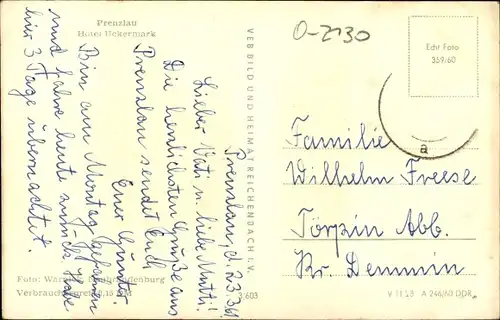 Prenzlau
Hotel Uckermark
O-2130
Echt Foto
359/60
Prenzlau, d. 23.3.61
Lieber Vati u. liebe Mutti!
Die herzlichsten Grüße aus
Prenzlau sendet Euch
Euer Günter.
Bin am Montag gefahren
und fahre heute zurück. Habe
hier 3 Tage übernachtet.
VEB BILD UND HEIMAT REICHENBACH i. V.
a
Familie
Wilhelm Freese
Törpin Abb.
Kr. Demmin
Foto:
Verbraucherpreis 0,15 DM
3/603
V 11 28 A 246/60 DDR